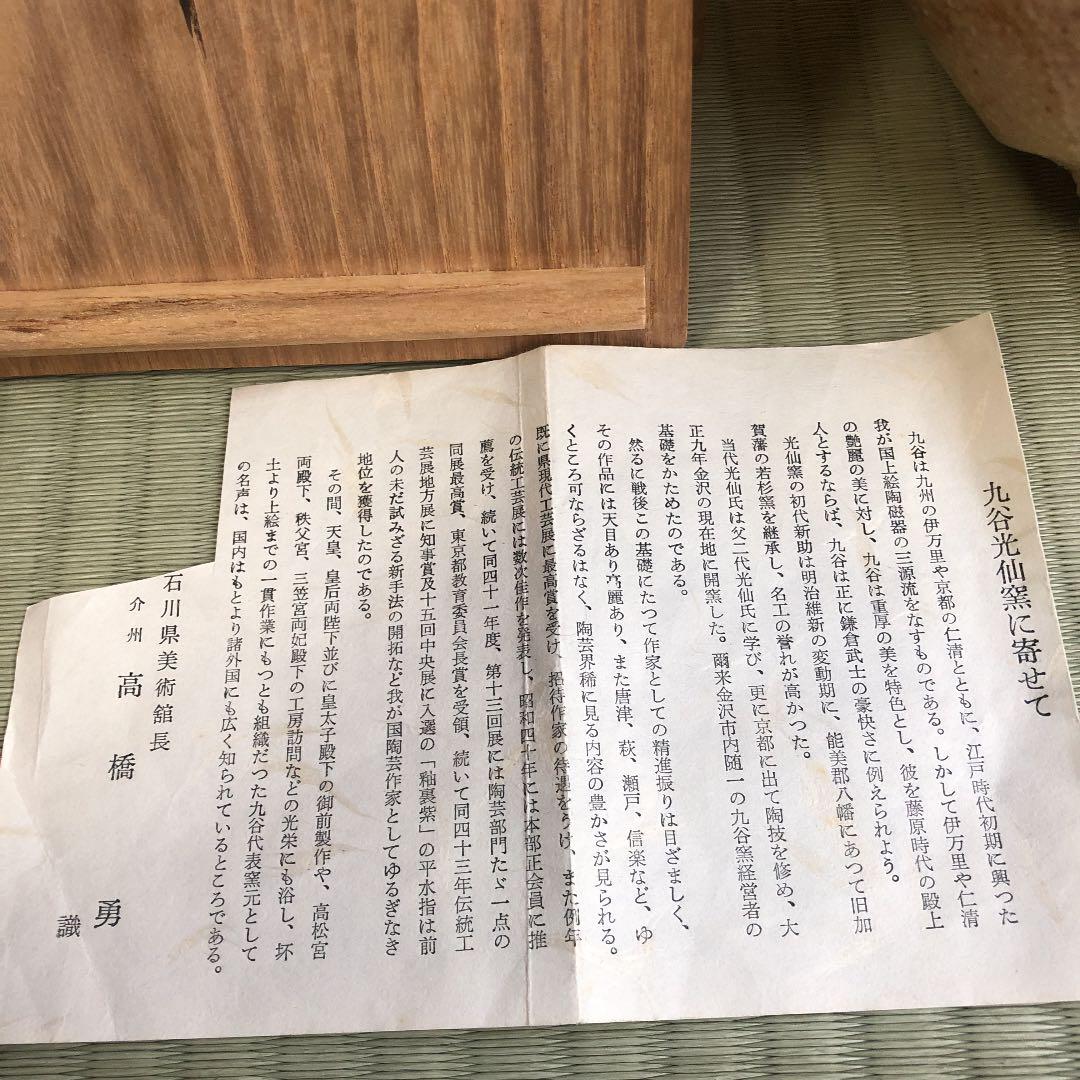 九谷光仙窯に寄せて
九谷は九州の伊万里や京都の仁清とともに、江戸時代初期に興つた
我が国上絵陶磁器の三源流をなすものである。しかして伊万里や仁清
の艶麗の美に対し、九谷は重厚の美を特色とし、彼を藤原時代の殿上
人とするならば、九谷は正に鎌倉武士の豪快さに例えられよう。
光仙窯の初代新助は明治維新の変動期に、能美郡八幡にあつて旧加
賀藩の若杉窯を継承し、名工の誉れが高かつた。
当代光仙氏は父二代光仙氏に学び、更に京都に出て陶技を修め、大
正九年金沢の現在地に開窯した。爾来金沢市内随一の九谷窯経営者の
基礎をかためたのである。
然るに戦後この基礎にたつて作家としての精進振りは目ざましく、
その作品には天目あり高麗あり、また唐津、萩、瀬戸、信楽など、ゆ
くところ可ならざるはなく、陶芸界稀に見る内容の豊かさが見られる。
既に県現代工芸展に最高賞を受け、招待作家の待遇をうけ、また例年
の伝統工芸展には数次佳作を発表し、昭和四十年には本部正会員に推
薦を受け、続いて同四十一年度、第十三回展には陶芸部門たゞ一点の
同展最高賞、東京都教育委員会長賞を受領、続いて同四十三年伝統工
芸展地方展に知事賞及十五回中央展に入選の「釉裏紫」の平水指は前
人の未だ試みざる新手法の開拓など我が国陶芸作家としてゆるぎなき
地位を獲得したのである。
その間、天皇、皇后両陛下並びに皇太子殿下の御前製作や、高松宮
両殿下、秩父宮、三笠宮両妃殿下の工房訪問などの光栄にも浴し、坏
土より上絵までの一貫作業にもつとも組織だつた九谷代表窯元として
の名声は、国内はもとより諸外国にも広く知られているところである。
石川県美術舘長
介州 高橋勇
識